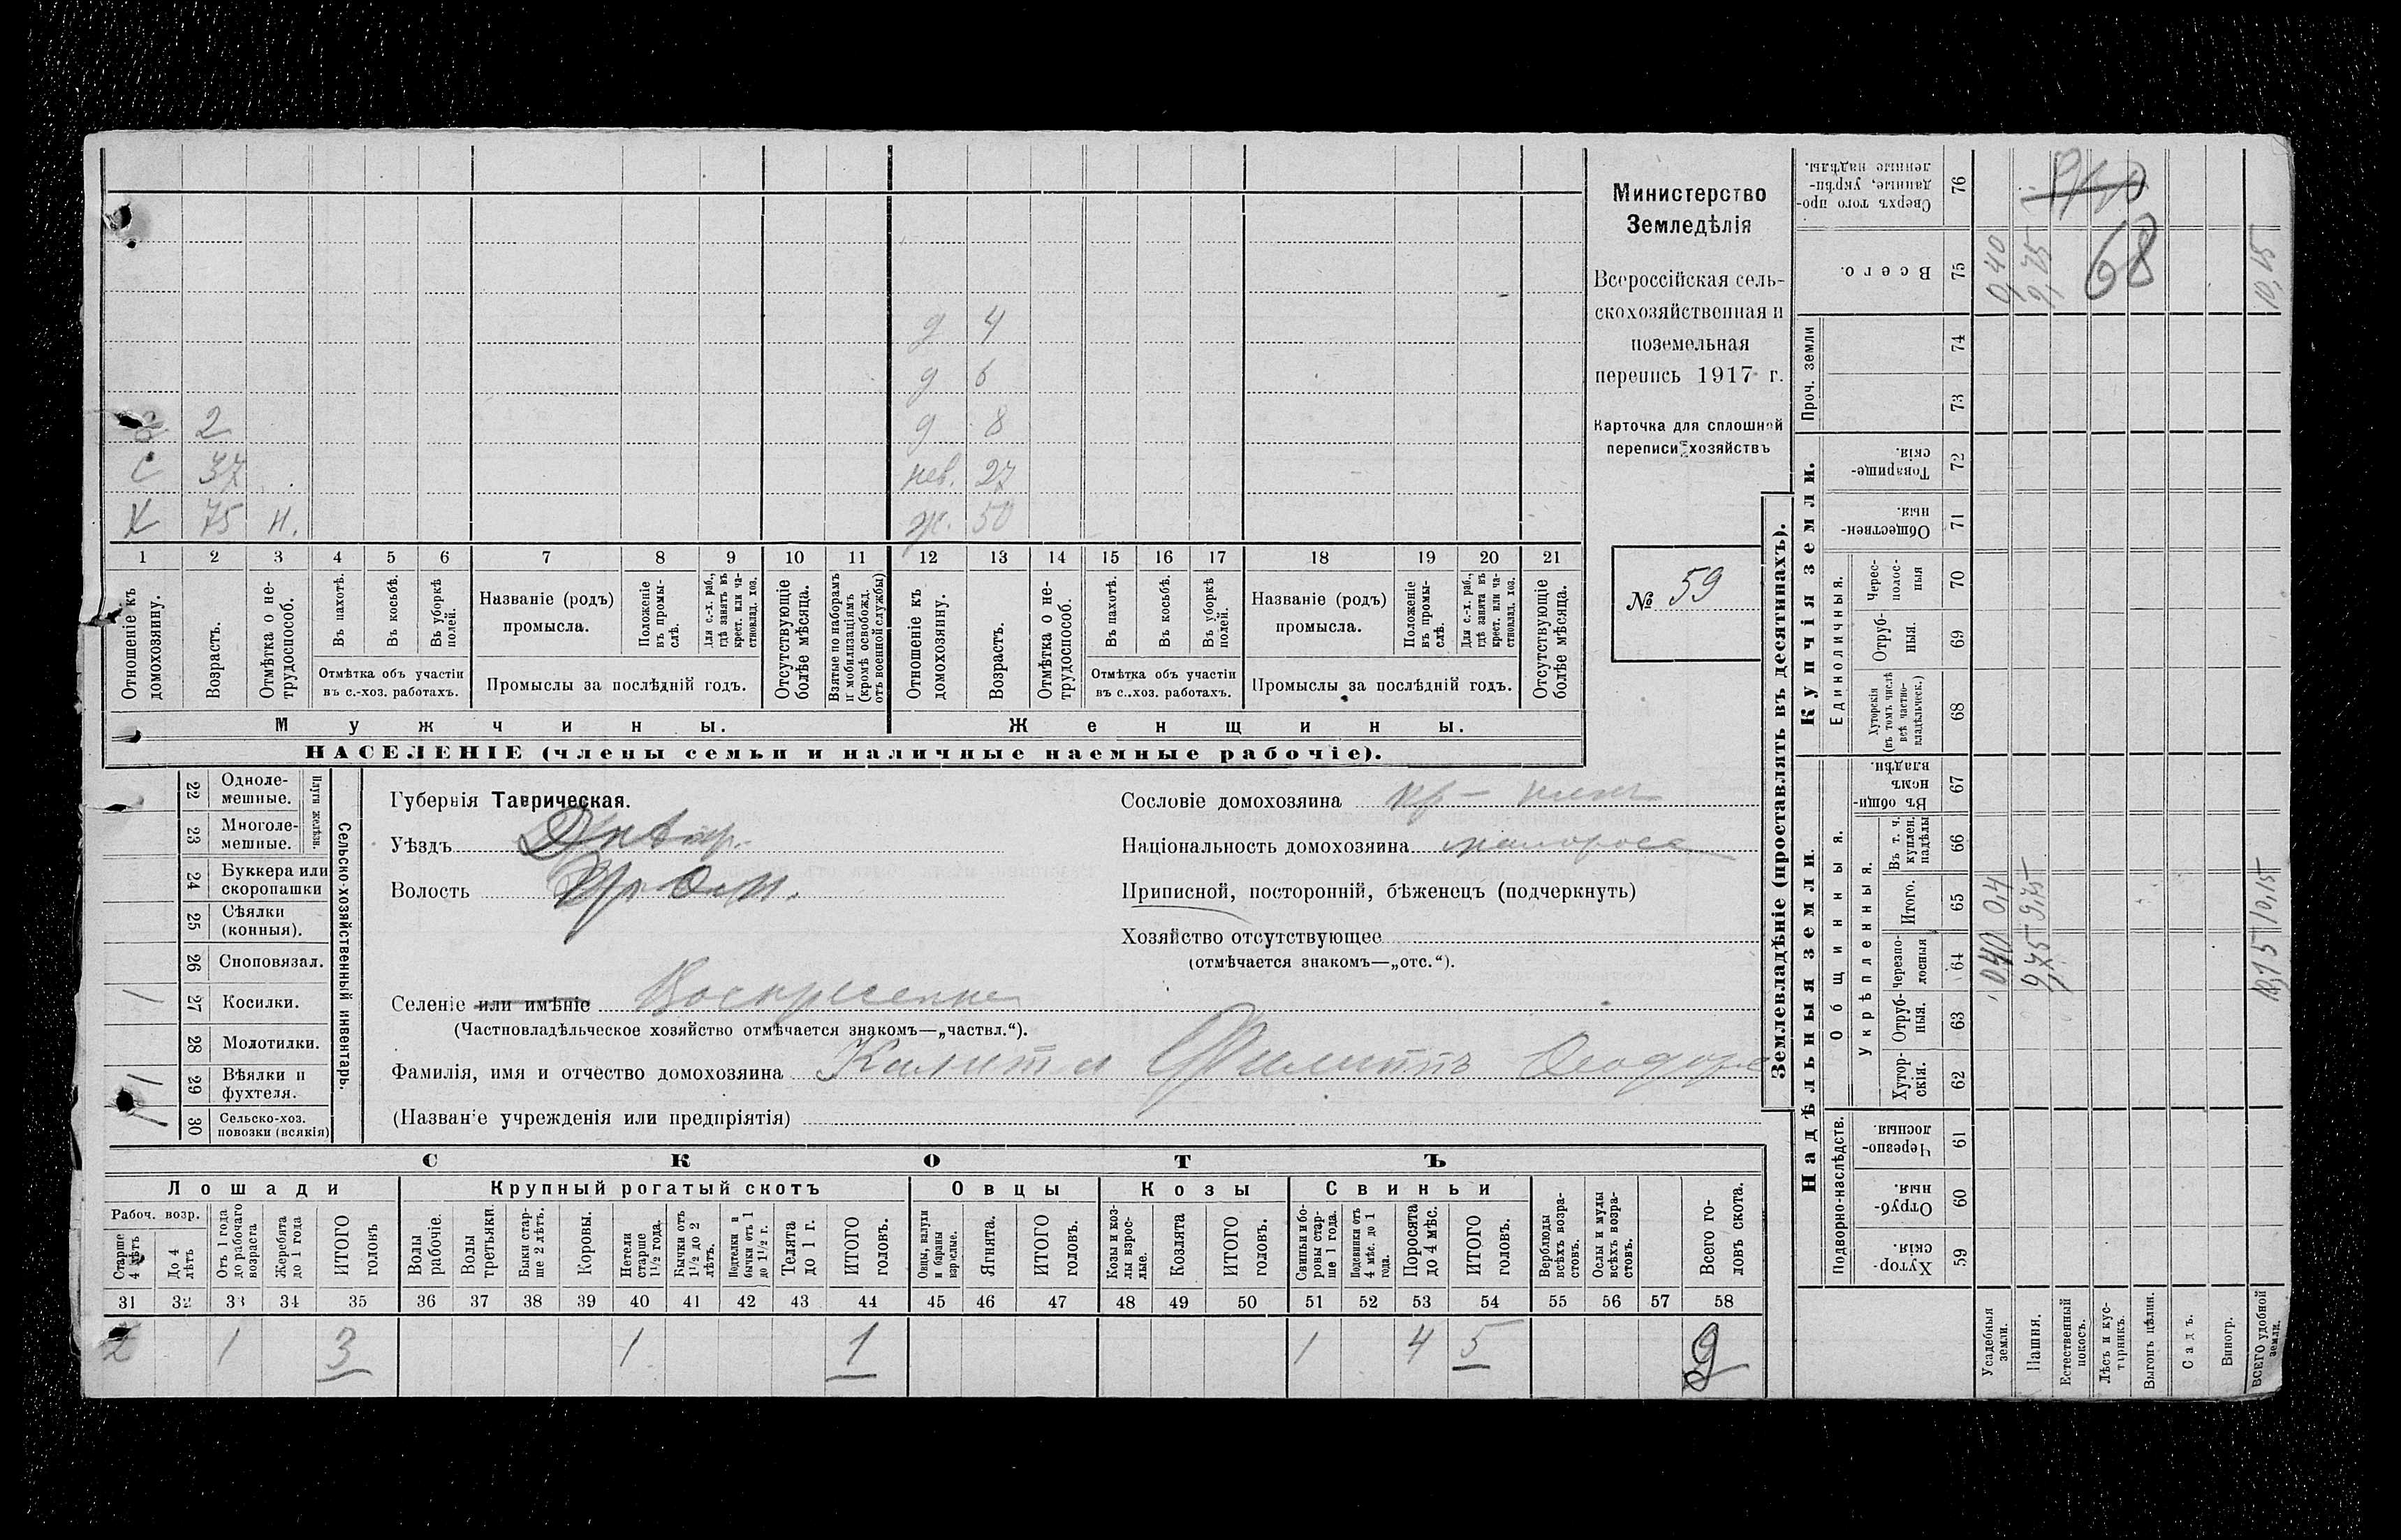 Министерство
Земледѣлія
Всероссійская сель-
скохозяйственная и
поземельная
перепись 1917 г.
Карточка для сплошной
переписи хозяйствъ
№ 59
д 4
д 6
2 д 8
с 37 нев. 27
х 75 н. ж. 50
1 2 3 4 5 6 7 8 9 10 11 12 13 14 15 16 17 18 19 20 21
Отношеніе къ домохозяину.
Возрастъ.
Отмѣтка о не-трудоспособ.
Въ пахотѣ.
Въ косьбѣ.
Въ уборкѣ полей.
Отмѣтка объ участіи
въ с.-хоз. работахъ.
Названіе (родъ)
промысла.
Положеніе въ промы-слѣ.
Для с.-х. раб., гдѣ занятъ въ крест. или ча-стновлад. хоз.
Промыслы за послѣдній годъ.
Отсутствующіе болѣе мѣсяца.
Взятые по наборамъ и мобилизаціямъ (кромѣ освобожд. отъ военной службы)
Отношеніе къ домохозяину.
Возрастъ.
Отмѣтка о не-трудоспособ.
Въ пахотѣ.
Въ косьбѣ.
Въ уборкѣ полей.
Отмѣтка объ участіи
въ с..хоз. работахъ.
Названіе (родъ)
промысла.
Положеніе въ промы-слѣ.
Для с.-х. раб., гдѣ занята въ крест. или ча-стновлад. хоз.
Промыслы за послѣдній годъ.
Отсутствующіе болѣе мѣсяца.
Мужчины.
Женщины.
НАСЕЛЕНІЕ (члены семьи и наличные наемные рабочіе).
Сельско-хозяйственный инвентарь.
Плуги желѣзн.
22 Одноле-мешные.
23 Многоле-мешные.
24 Буккера или скоропашки
25 Сѣялки (конныя).
26 Сноповязал.
1 27 Косилки.
28 Молотилки.
1 29 Вѣялки и фухтеля.
1 30 Сельско-хоз. повозки (всякія)
Губернія Таврическая.
Уѣздъ Днѣпр.
Волость
Селеніе или имѣніе Воскресенка
(Частновладѣльческое хозяйство отмѣчается знакомъ—„частвл.“).
Фамилія, имя и отчество домохозяина Калита Филиппъ Ѳеодоров
(Названіе учрежденія или предпріятія)
Сословіе домохозяина кр-нинъ
Національность домохозяина малороссъ
Приписной, посторонній, бѣженецъ (подчеркнуть)
Хозяйство отсутствующее
(отмѣчается знакомъ—„отс.“).
СКОТЪ
Лошади
Крупный рогатый скотъ
Овцы
Козы
Свиньи
Рабоч. возр.
Старше 4 лѣтъ
До 4 лѣтъ
Отъ 1 года до рабочаго возраста
Жеребята до 1 года
ИТОГО головъ
Волы рабочіе.
Волы третьяки.
Быки стар-ше 2 лѣтъ.
Коровы.
Нетели старше 1½ года.
Бычки отъ 1½ до 2 лѣтъ.
Подтелки и бычки отъ 1 до 1½ г.
Телята до 1 г.
ИТОГО головъ.
Овцы, валухи и бараны взрослые.
Ягнята.
ИТОГО головъ.
Козы и коз-лы взрос-лые.
Козлята
ИТОГО головъ.
Свиньи и бо-ровы стар-ше 1 года.
Подсвинки отъ 4 мѣс. до 1 года.
Поросята до 4 мѣс.
ИТОГО головъ.
Верблюды всѣхъ возра-стовъ.
Ослы и мулы всѣхъ возра-стовъ.
Всего го-ловъ скота.
31 32 33 34 35 36 37 38 39 40 41 42 43 44 45 46 47 48 49 50 51 52 53 54 55 56 57 58
2 1 3 1 1 1 4 5 9
Землевладѣніе (проставлять въ десятинахъ).
Надѣльныя земли.
Купчія земли.
Проч. земли
Подворно-наслѣдств.
Общинныя.
Укрѣпленныя.
Единоличныя.
Хутор-скія. 59
Отруб-ныя. 60
Черезпо-лосныя. 61
Хутор-скія. 62
Отруб-ныя. 63
Черезпо-лосныя 64
Итого. 65
Въ т. ч. куплен. надѣлы 66
Въ общи-номъ владѣн. 67
Хуторскія (въ томъ числѣ всѣ частно-владѣльческ.) 68
Отруб-ныя. 69
Черес-полос-ныя 70
Обществен-ныя. 71
Товарище-скія. 72
73
74
Всего. 75
Сверхъ того про-данные, укрѣп-ленные надѣлы. 76
Усадебныя земли. 0,40 0,4 0,40
Пашня. 9,75 9,75 9,75
Естественный покосъ.
Лѣсъ и кус-тарникъ.
Выгонъ цѣлин.
Садъ.
Виногр.
ВСЕГО удобной земли. 10,15 10,15 10,15
68